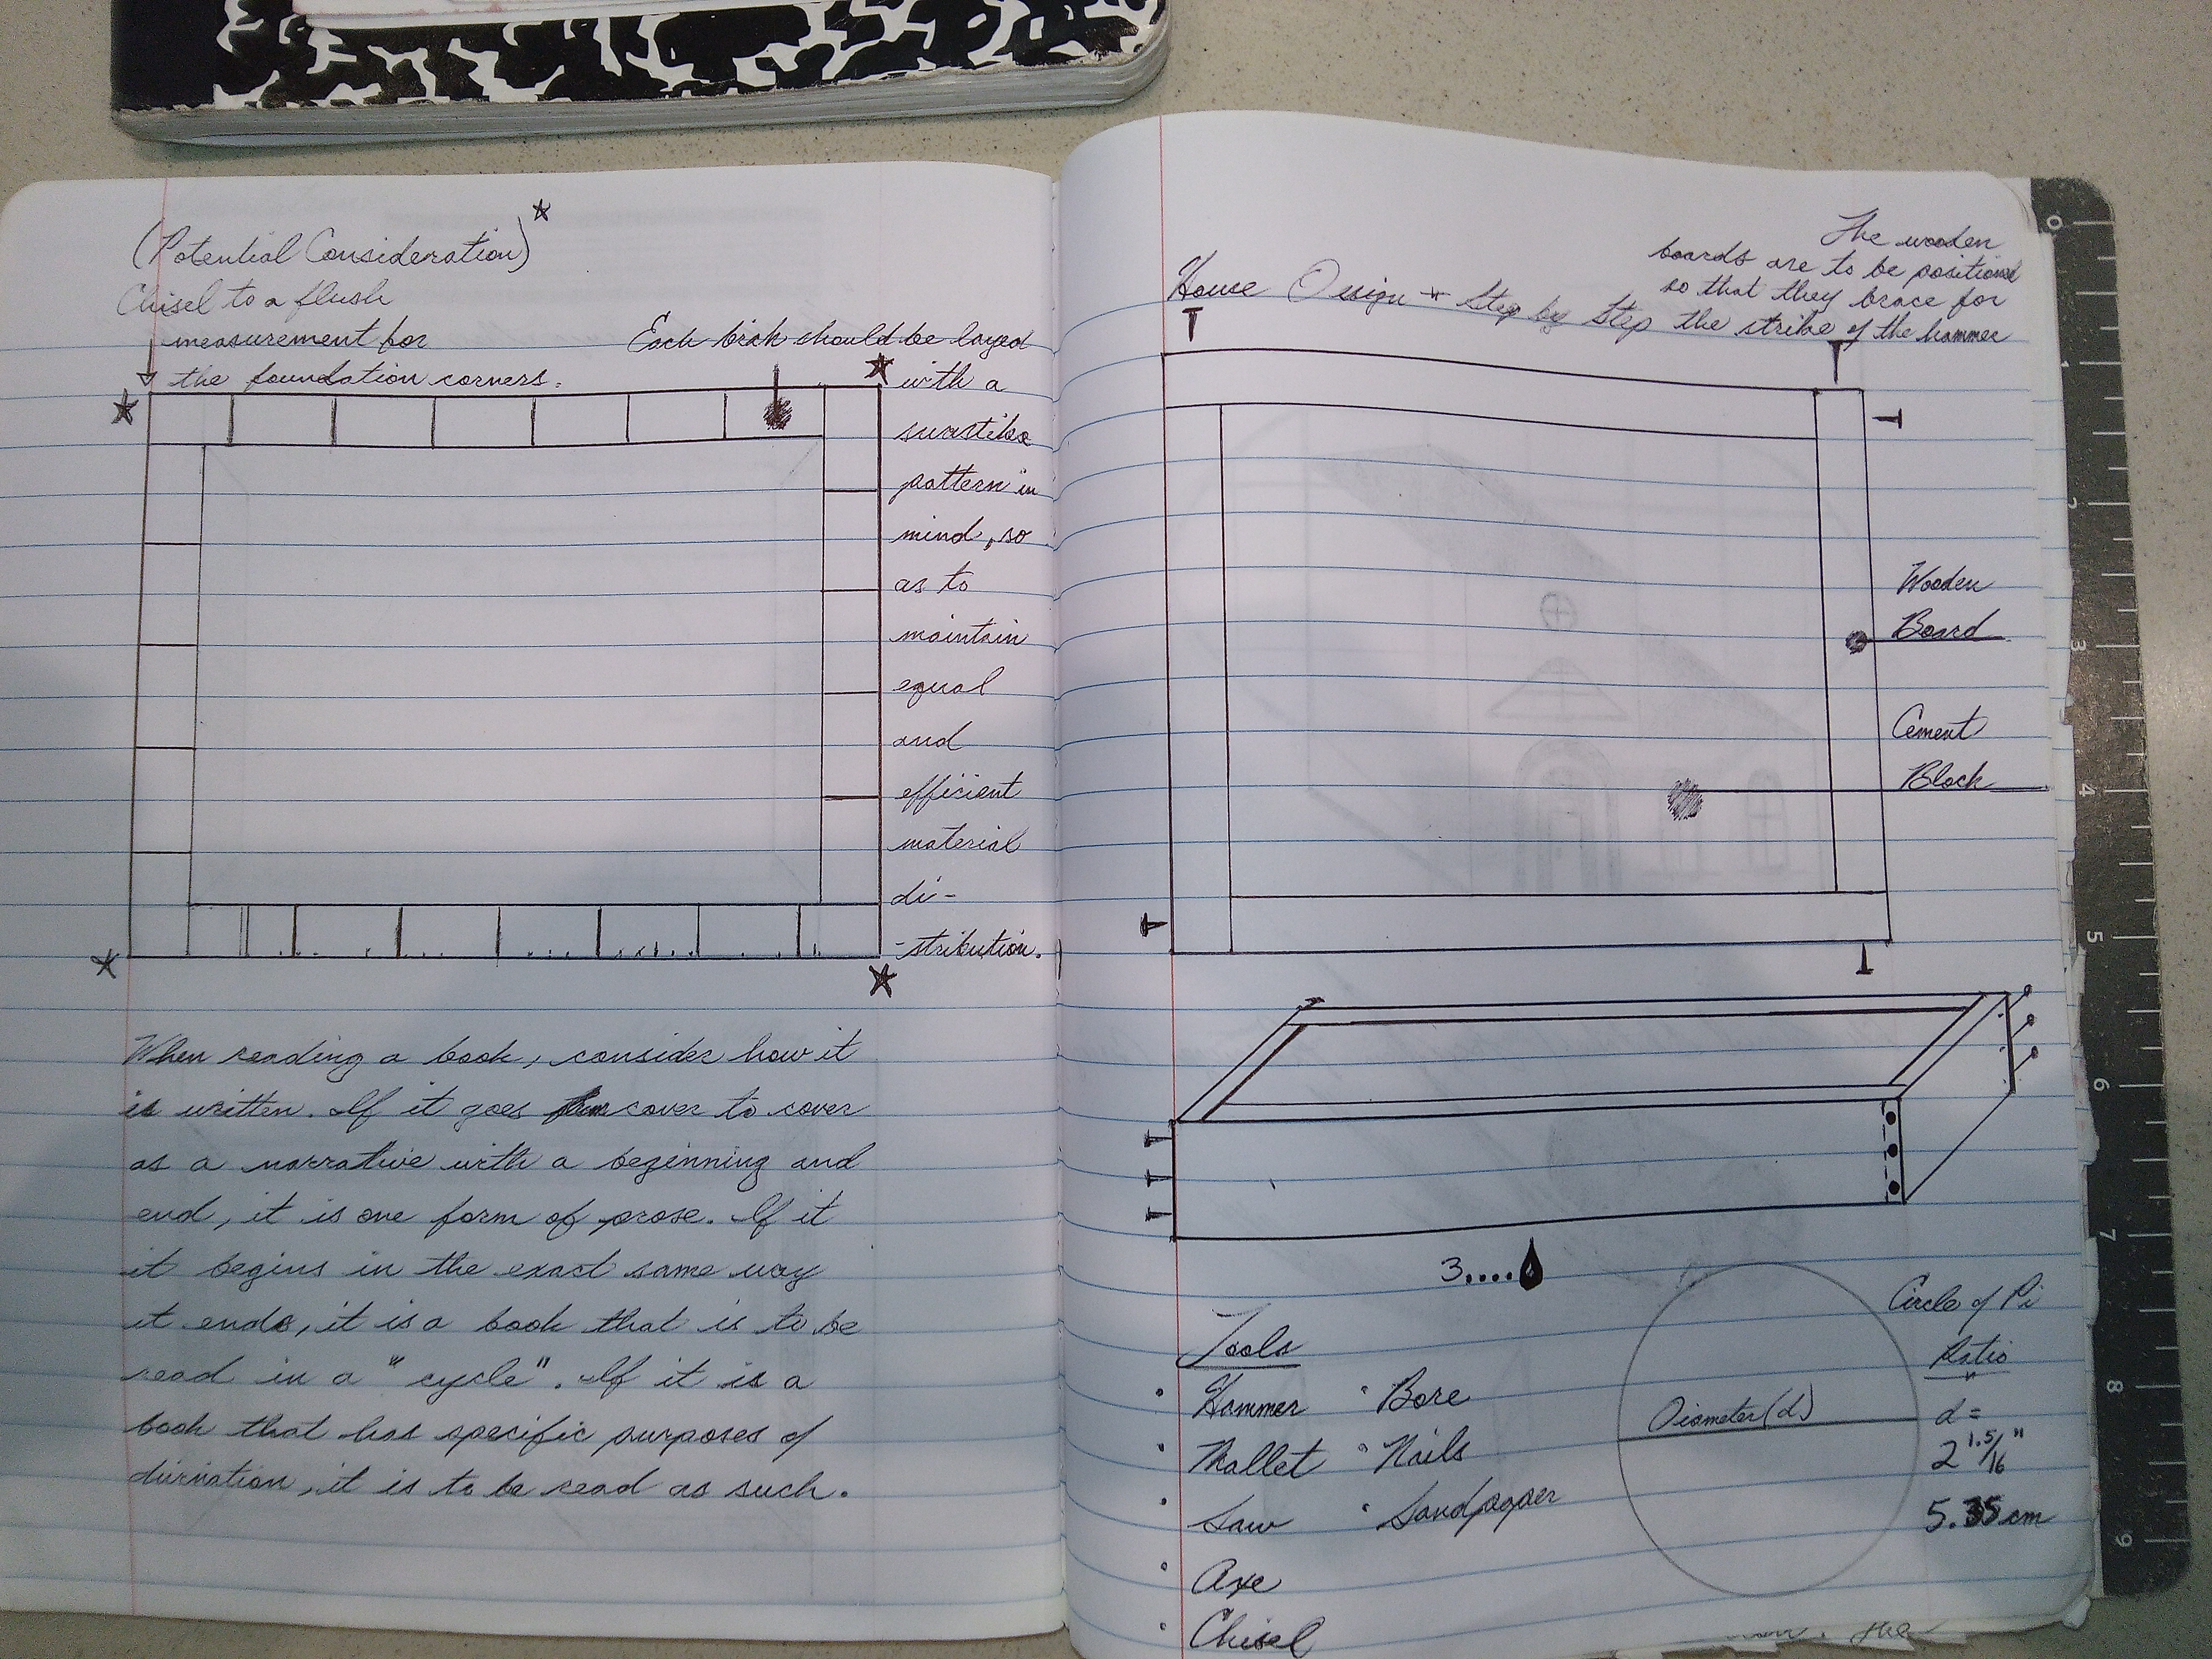 (Potential Consideration)
Chisel to a flush
measurement for
the foundation corners.
Each brick should be layed
with a
swastika
pattern in
mind, so
as to
maintain
equal
and
efficient
material
di-
-stribution.
When reading a book, consider how it
is written. If it goes cover to cover
as a narrative with a beginning and
end, it is one form of prose. If it
it begins in the exact same way
it ends, it is a book that is to be
read in a "cycle". If it is a
book that has specific purposes of
, it is to be read as such.
House Design - Step by Step
The wooden
boards are to be positioned
so that they brace for
the strike of the hammer
Wooden
Board
Cement
Block
3....
Tools
• Hammer
• Mallet
• Saw
• Axe
• Chisel
• Bore
• Nails
• Sandpaper
Diameter (d)
Circle of Pi
Ratio
d =
2 1.5/16"
5.35 cm
the
0
1
2
3
4
5
6
7
8
9